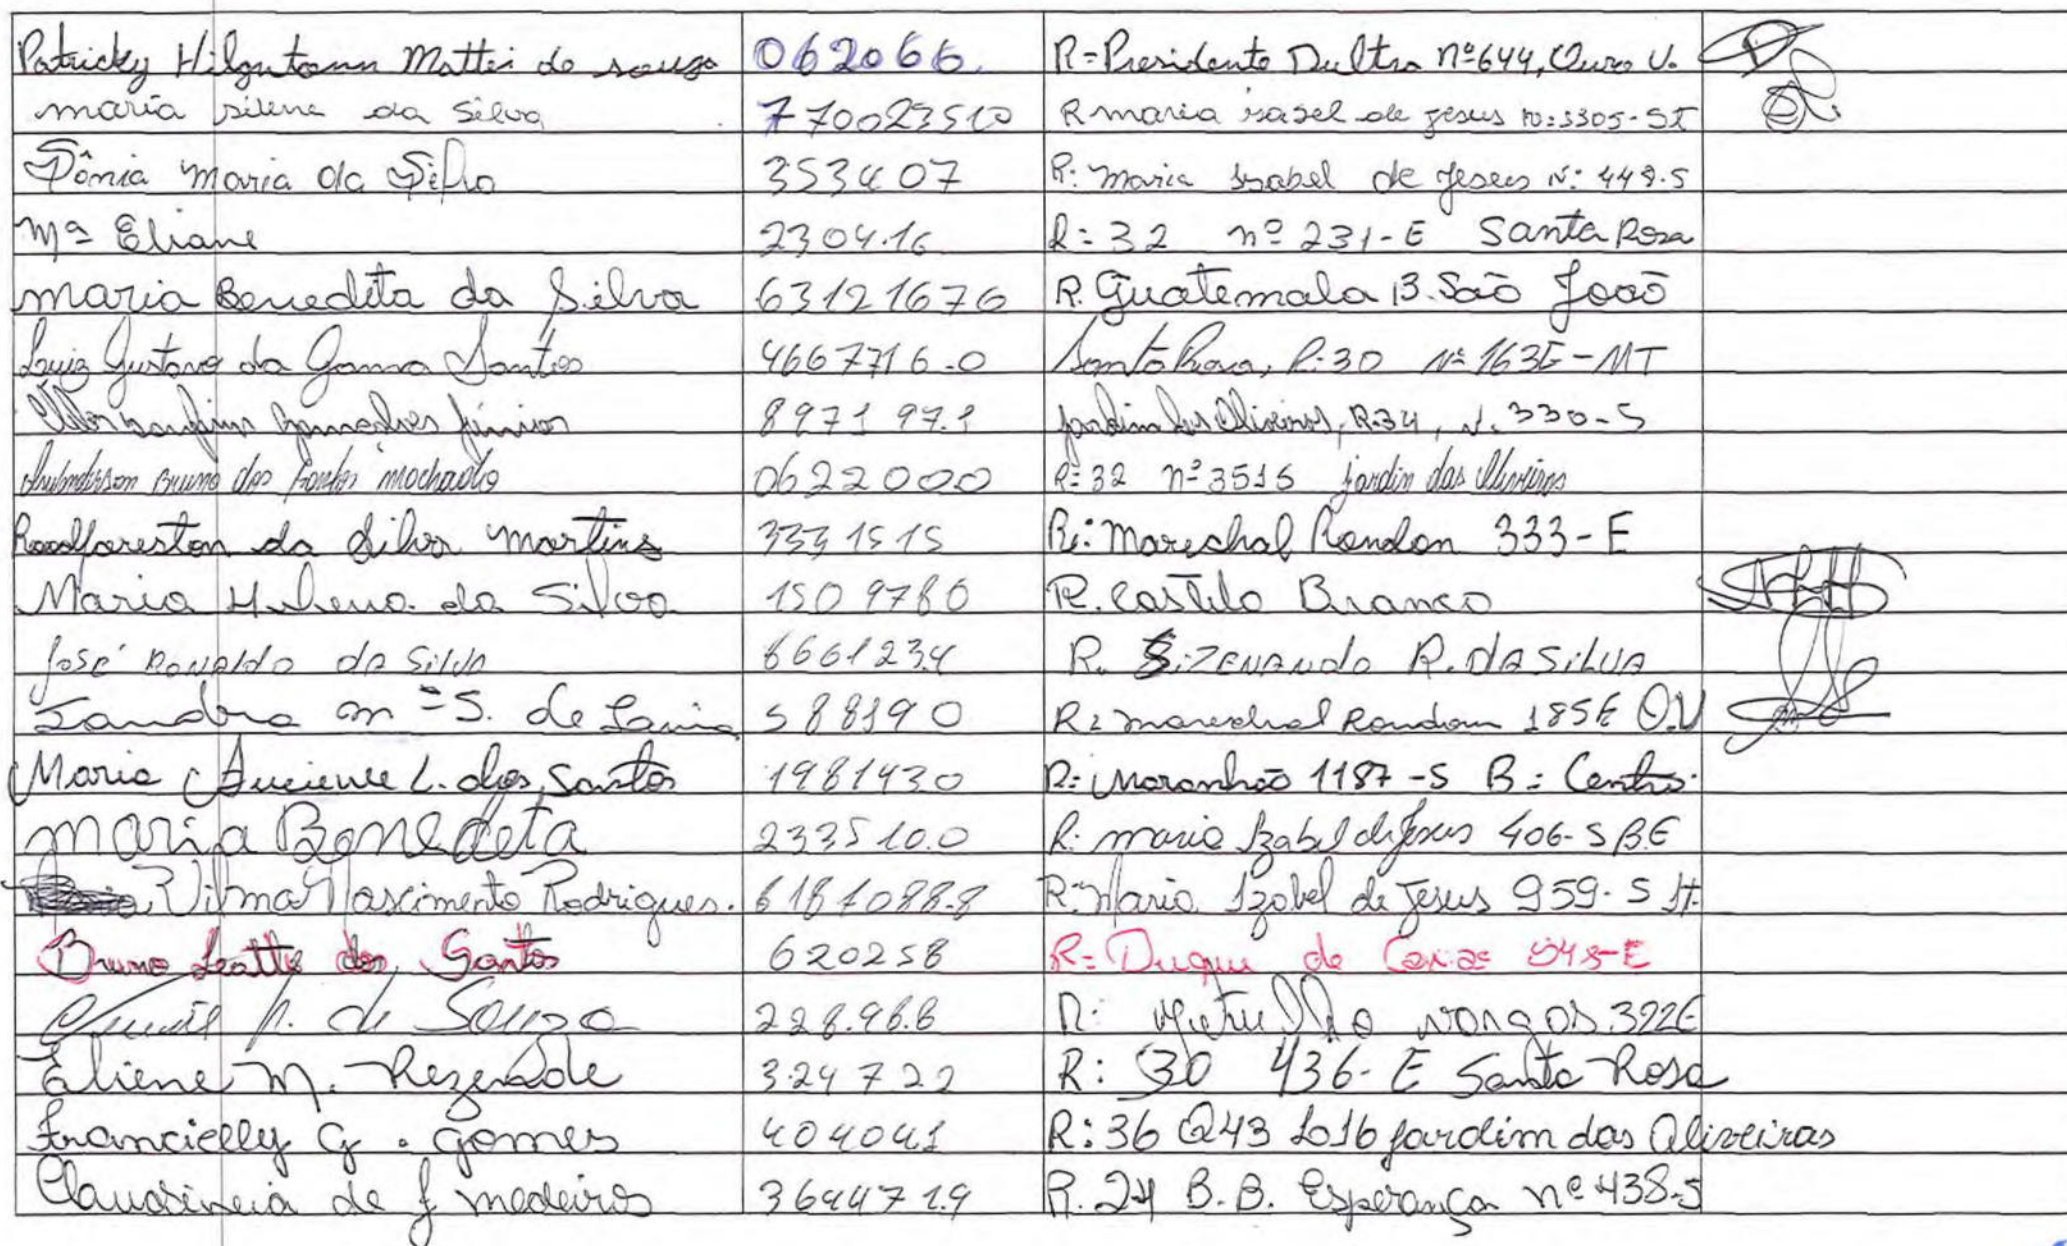 Patricky Hilgntann Mattei de souza 062066 R=Presidente Dultra nº644, Ouro V.
maria silene da Silva 770023510 R maria isabel de jesus nº:3305-ST
Tônia maria da Silva 353407 R: Maria Izabel de Jesus Nº 448.S
Mª Eliane 2304.16 R:32 nº 231-E Santa Rosa
maria Benedita da Silva 63121676 R. Guatemala 13. São João
Luiz Gustavo da Gama Santos 4667716-0 Santa Rosa, R:30 Nº 163E-MT
Gonsalves júnior 8971 97.1 jardim das Oliveiras, R.34, N. 330-S
Bruno dos Santos machado 0622000 R=32 nº3515 jardin das Oliveiras
da Silva Martins 3331515 R: Marechal Rondon 333-E
Maria Helena da Silva 1509780 R. Castelo Branco
José Ronaldo da Silva 6661234 R. SiZENANDo R. DA SiLVA
Sandra mª S. de Lima 588190 R: marechal Rondom 185E O.V
Maria Luciene L. dos Santos 1981430 R: Maranhão 1187-S B: Centro.
maria Benedeta 233510.0 R: maria Izabel de Jesus 406-S B.E
Vilma Nascimento Rodrigues. 6181088-8 R: Maria Izabel de Jesus 959-S
Bruno Leatte dos Santos 620258 R= Duque de Caxias 848-E
de Souza 228.96.6 R: Getulho vargas 322E
Eliene M. Rezende 324722 R: 30 436-E Santa Rosa
Francielly G. gomes 404041 R:36 Q43 Lo16 jardim das Oliveiras
Claudineia de f medeiros 3644719 R.24 B.B. Esperança nº 438-S